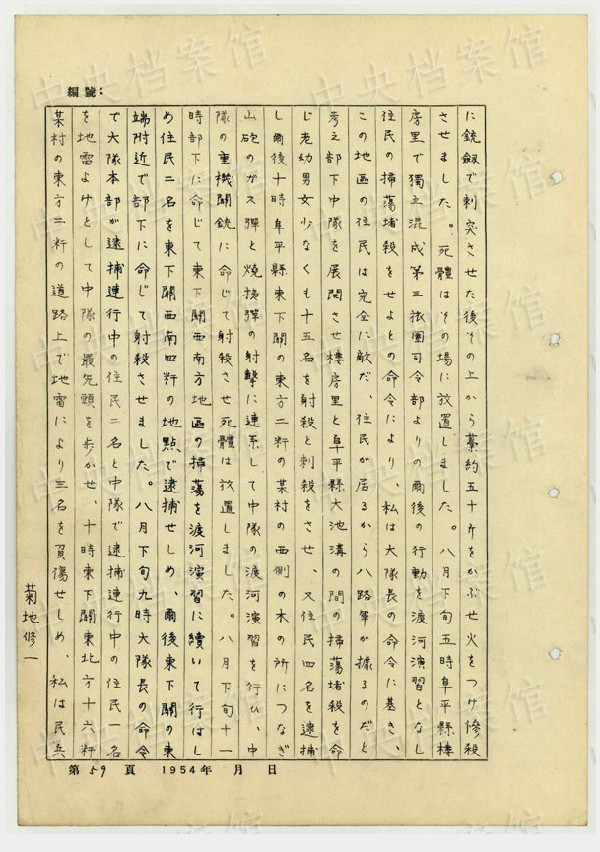 編號：
に銃剣で刺突させた後その上から藁約五十斤をかぶせ火をつけ惨殺
させました。死體はその場に放置しました。八月下旬五時阜平縣樓
房里で獨立混成第三旅團司令部よりの爾後の行動を渡河演習となし
住民の掃蕩堵殺をせよとの命令により、私は大隊長の命令に基き、
この地區の住民は完全に敵だ、住民が居るから八路軍が據るのだと
考え部下中隊を展開させ樓房里と阜平縣大池溝の間の掃蕩堵殺を命
じ老幼男女少なくも十五名を射殺と刺殺をさせ、又住民四名を逮捕
し爾後十時阜平縣東下關の東方二粁の某村の西側の木の所につなぎ
山砲のガス彈と焼夷彈の射撃に連系して中隊の渡河演習を行ひ、中
隊の重機関銃に命じて射殺させ死體は放置しました。八月下旬十一
時部下に命じて東下關西南方地區の掃蕩を渡河演習に続いて行はし
め住民二名を東下關西南四粁の地點で逮捕せしめ、爾後東下關の東
端附近で部下に命じて射殺させました。八月下旬九時大隊長の命令
で大隊本部が逮捕連行中の住民二名と中隊で逮捕連行中の住民一名
を地雷よけとして中隊の最先頭を歩かせ、十時東下關東北方十六粁
某村の東方二粁の道路上で地雷により三名を負傷せしめ、私は民兵
菊地修一
第59頁 1954年 月 日
中央档案馆